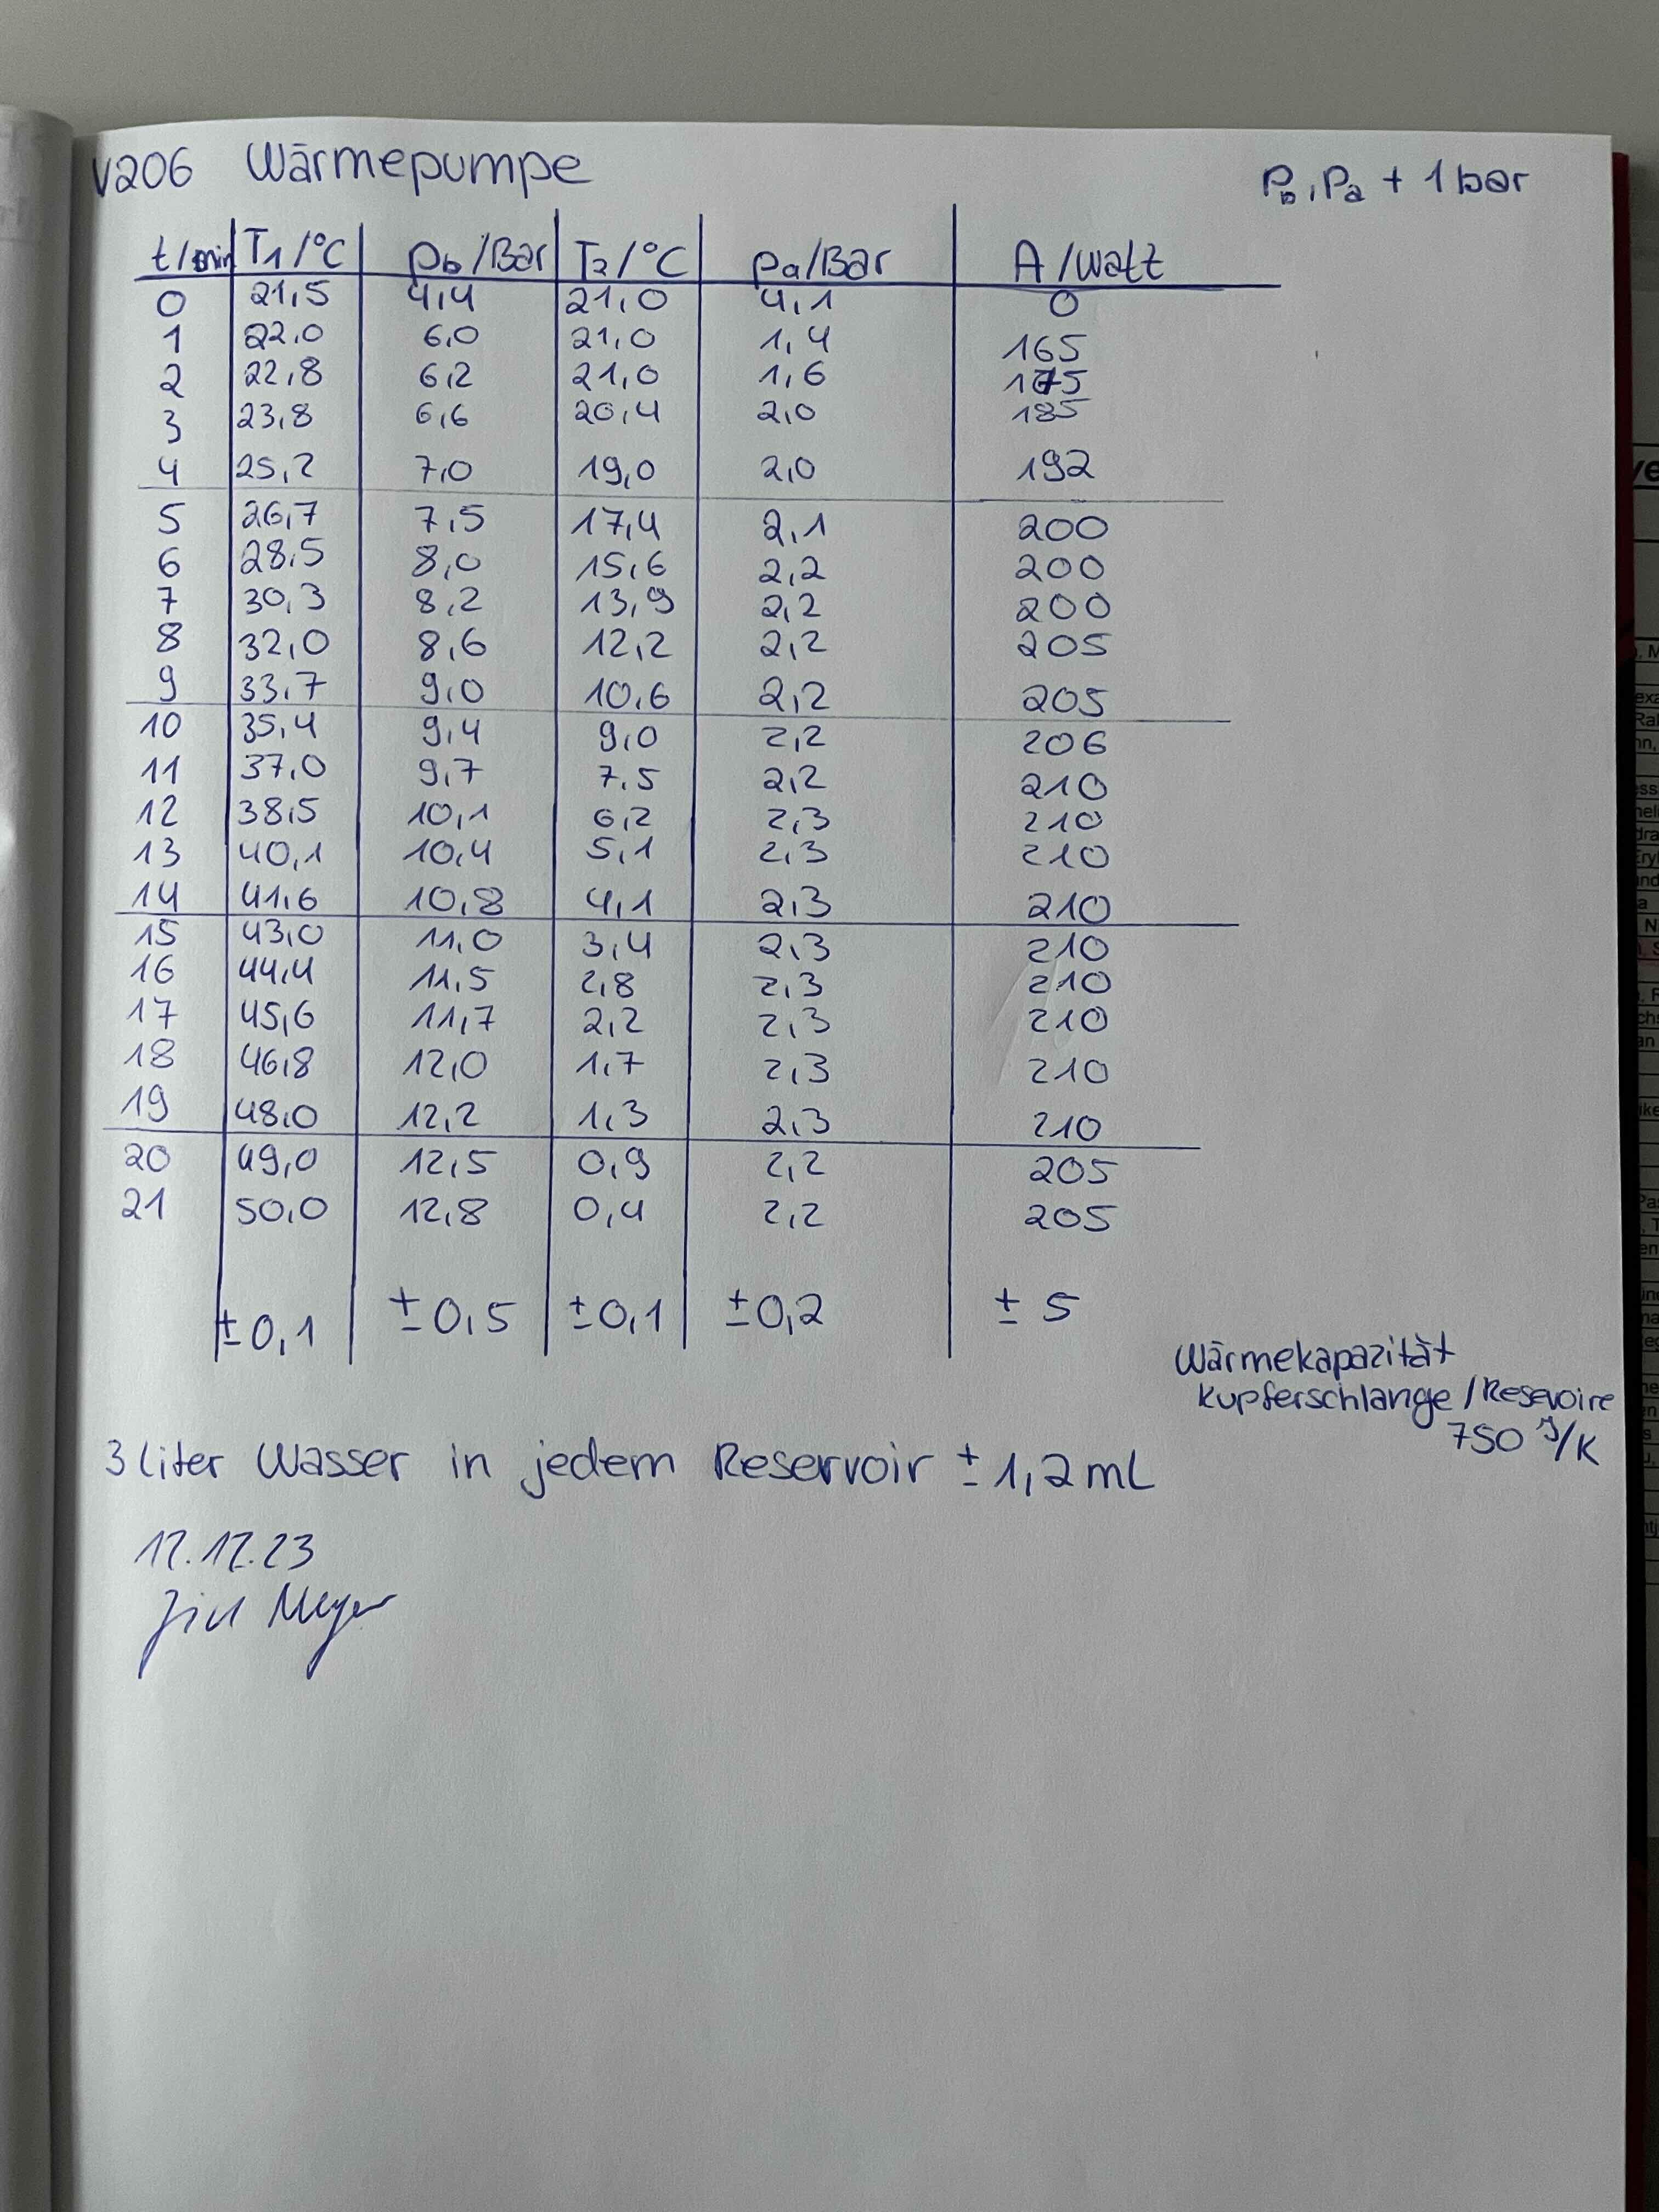 V206 Wärmepumpe
Pb, Pa + 1 bar
t/min T1/°C pb/Bar T2/°C pa/Bar A/Watt
0 21,5 4,4 21,0 4,1 0
1 22,0 6,0 21,0 1,4 165
2 22,8 6,2 21,0 1,6 175
3 23,8 6,6 20,4 2,0 185
4 25,2 7,0 19,0 2,0 192
5 26,7 7,5 17,4 2,1 200
6 28,5 8,0 15,6 2,2 200
7 30,3 8,2 13,9 2,2 200
8 32,0 8,6 12,2 2,2 205
9 33,7 9,0 10,6 2,2 205
10 35,4 9,4 9,0 2,2 206
11 37,0 9,7 7,5 2,2 210
12 38,5 10,1 6,2 2,3 210
13 40,1 10,4 5,1 2,3 210
14 41,6 10,8 4,1 2,3 210
15 43,0 11,0 3,4 2,3 210
16 44,4 11,5 2,8 2,3 210
17 45,6 11,7 2,2 2,3 210
18 46,8 12,0 1,7 2,3 210
19 48,0 12,2 1,3 2,3 210
20 49,0 12,5 0,9 2,2 205
21 50,0 12,8 0,4 2,2 205
±0,1 ±0,5 ±0,1 ±0,2 ±5
Wärmekapazität
Kupferschlange/Resevoire
750 J/K
3 liter Wasser in jedem Reservoir ± 1,2 mL
12.12.23